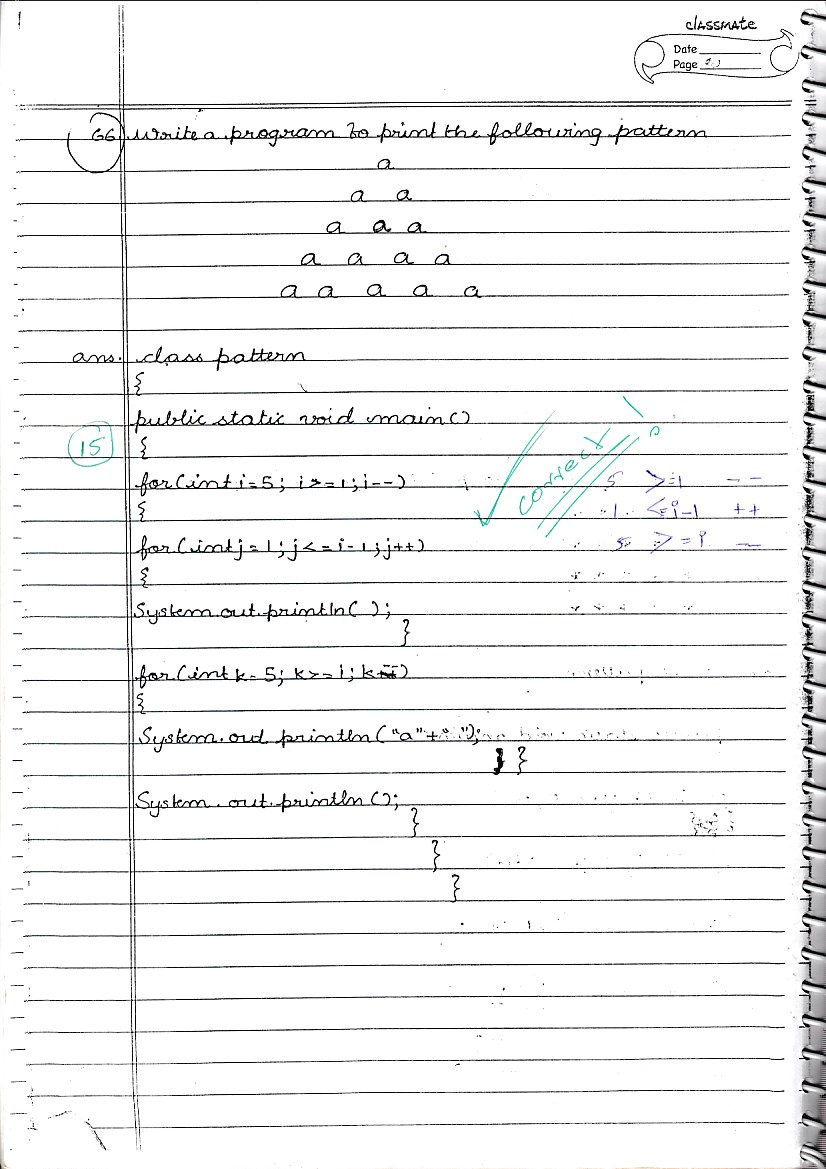 classmate
Date
Page
66 Write a program to print the following pattern
a
a a
a a a
a a a a
a a a a a
ans. class pattern
{
public static void main()
15 {
for(int i=5; i>=1;i--) correct 5 >=1 --
{ 1 <=i-1 ++
for(int j=1;j<=i-1;j++) 5 >=i --
{
System.out.println( );
}
for(int k=5; k>=i;k--)
{
System.out println("a"+" ");
} }
System.out.println();
}
}
}